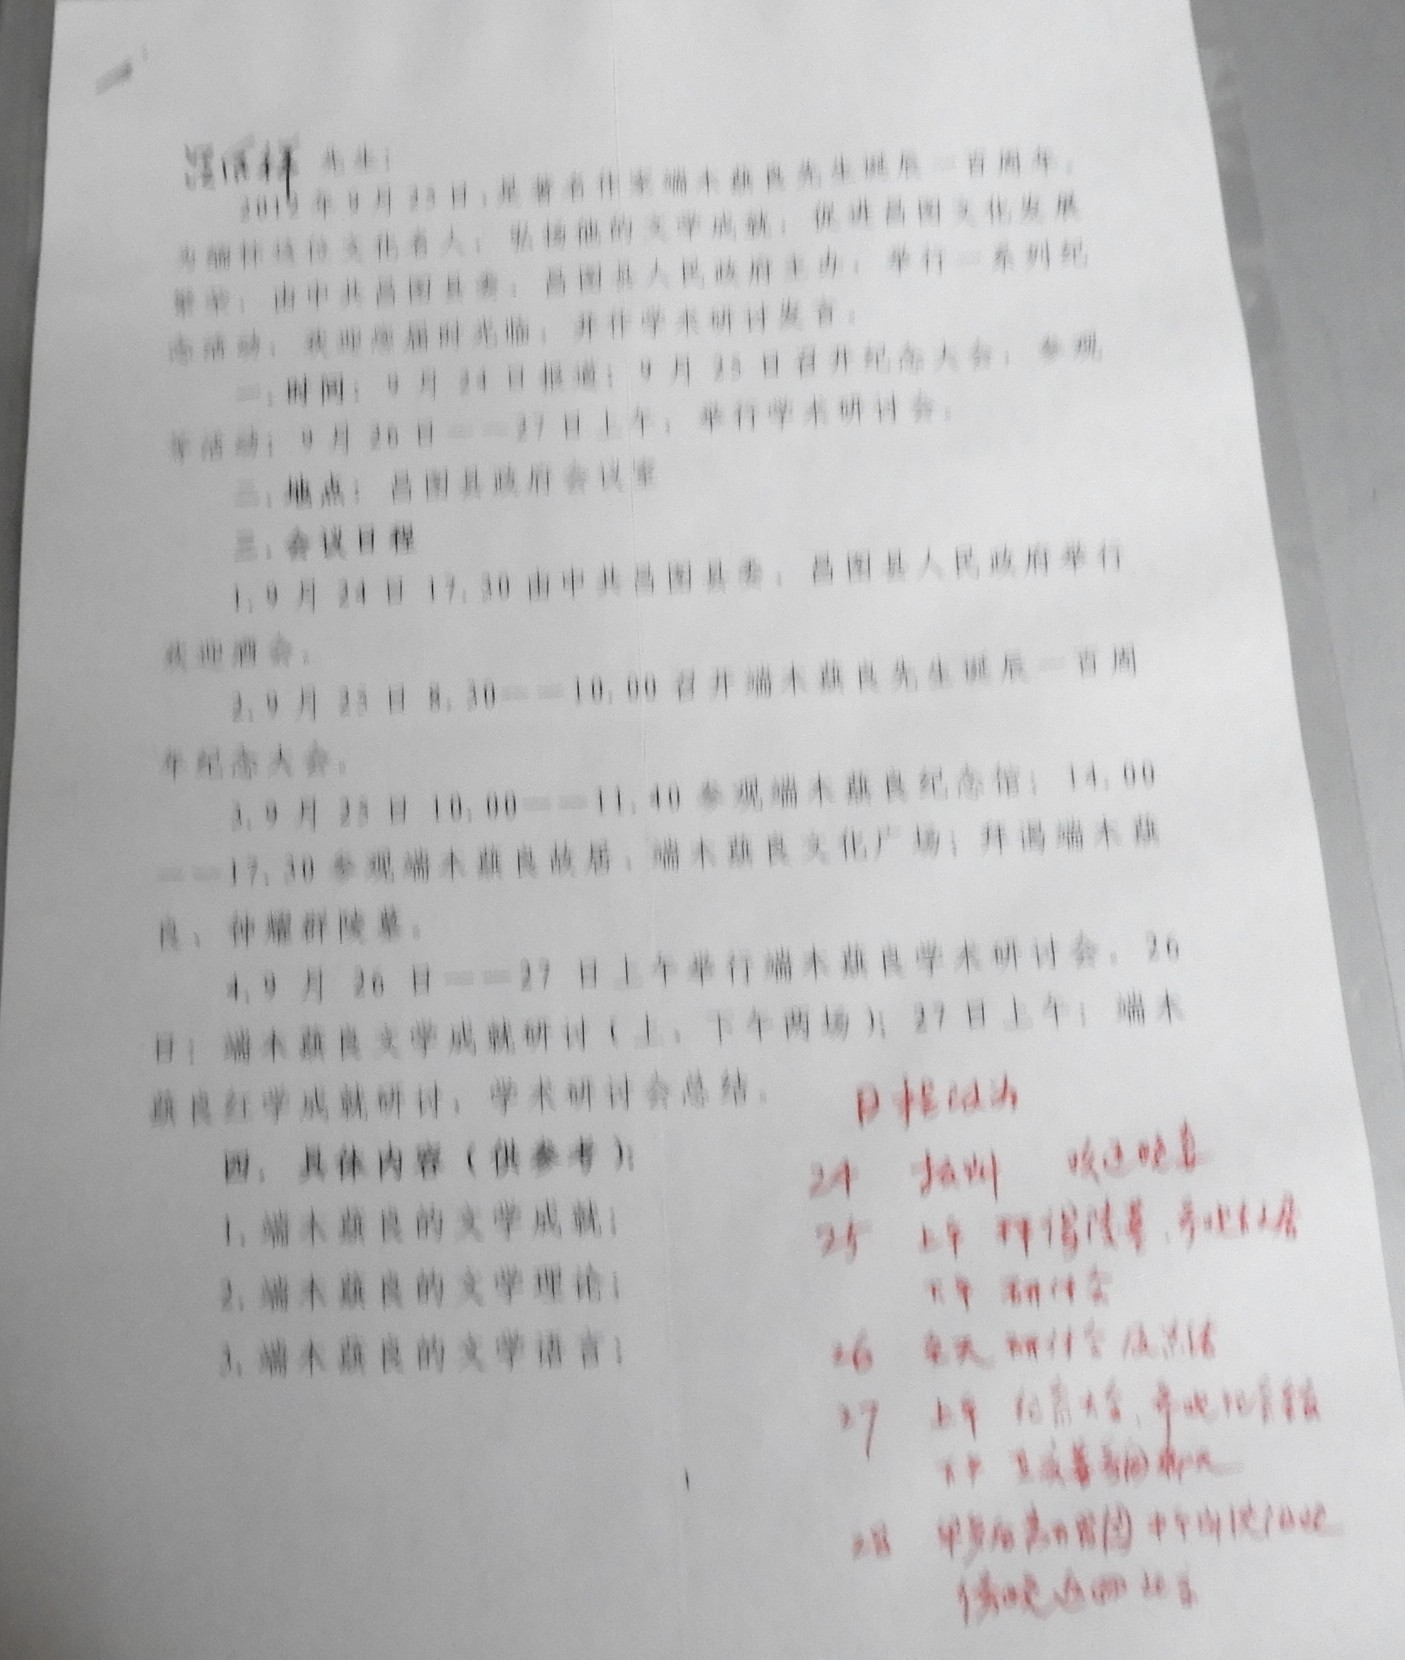 先生：
2012年9月25日，是著名作家端木蕻良先生诞辰一百周年。
为缅怀这位文化名人，弘扬他的文学成就，促进昌图文化发展
繁荣，由中共昌图县委、昌图县人民政府主办，举行一系列纪
念活动，欢迎您届时光临，并作学术研讨发言。
一、时间：9月24日报道；9月25日召开纪念大会，参观
等活动；9月26日——27日上午，举行学术研讨会。
二、地点：昌图县政府会议室
三、会议日程
1、9月24日17：30由中共昌图县委、昌图县人民政府举行
欢迎酒会。
2、9月25日8：30——10：00召开端木蕻良先生诞辰一百周
年纪念大会。
3、9月25日10：00——11：40参观端木蕻良纪念馆；14：00
——17：30参观端木蕻良故居、端木蕻良文化广场；拜谒端木蕻
良、钟耀群陵墓。
4、9月26日——27日上午举行端木蕻良学术研讨会。26
日：端木蕻良文学成就研讨（上、下午两场）；27日上午：端木
蕻良红学成就研讨，学术研讨会总结。
四、具体内容（供参考）：
1、端木蕻良的文学成就；
2、端木蕻良的文学理论；
3、端木蕻良的文学语言；
日程改为
24 报到
25 上午 拜谒陵墓、参观故居
下午 研讨会
26 全天 研讨会及总结
27 上午 纪念大会、参观纪念馆
下午
28